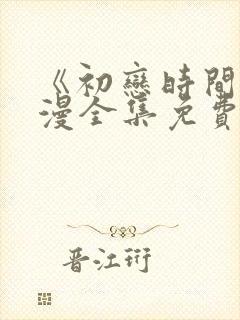 《初戀時間
漫全集免費
晋江珩